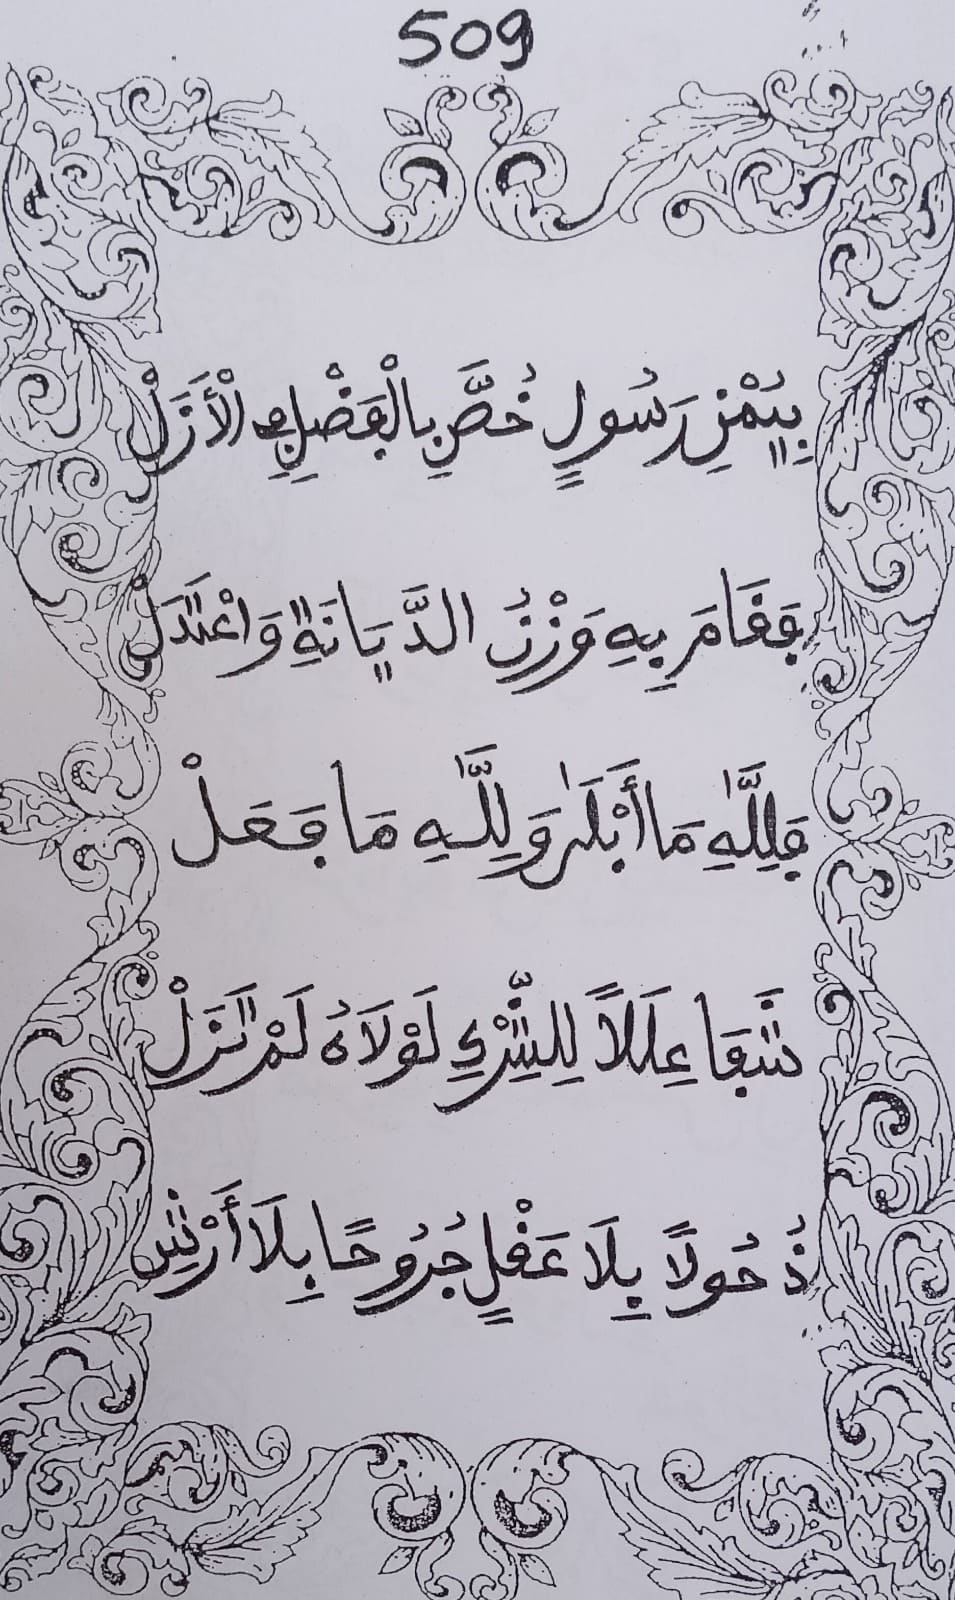 509
بِيُمْنِ رَسُولٍ خُصَّ بِالْفَضْلِ فِي الْأَزَلْ
فَقَامَ بِهِ وَزْنُ الدِّيَانَةِ وَاعْتَدَلْ
فَلِلَّهِ مَا أَبْلَى وَلِلَّهِ مَا فَعَلْ
شَفَا عِلَلاً لِلشِّرْكِ لَوْلَاهُ لَمْ تَزَلْ
ذُحُولاً بِلَا عَقْلٍ جُرُوحًا بِلَا أَرْشِ